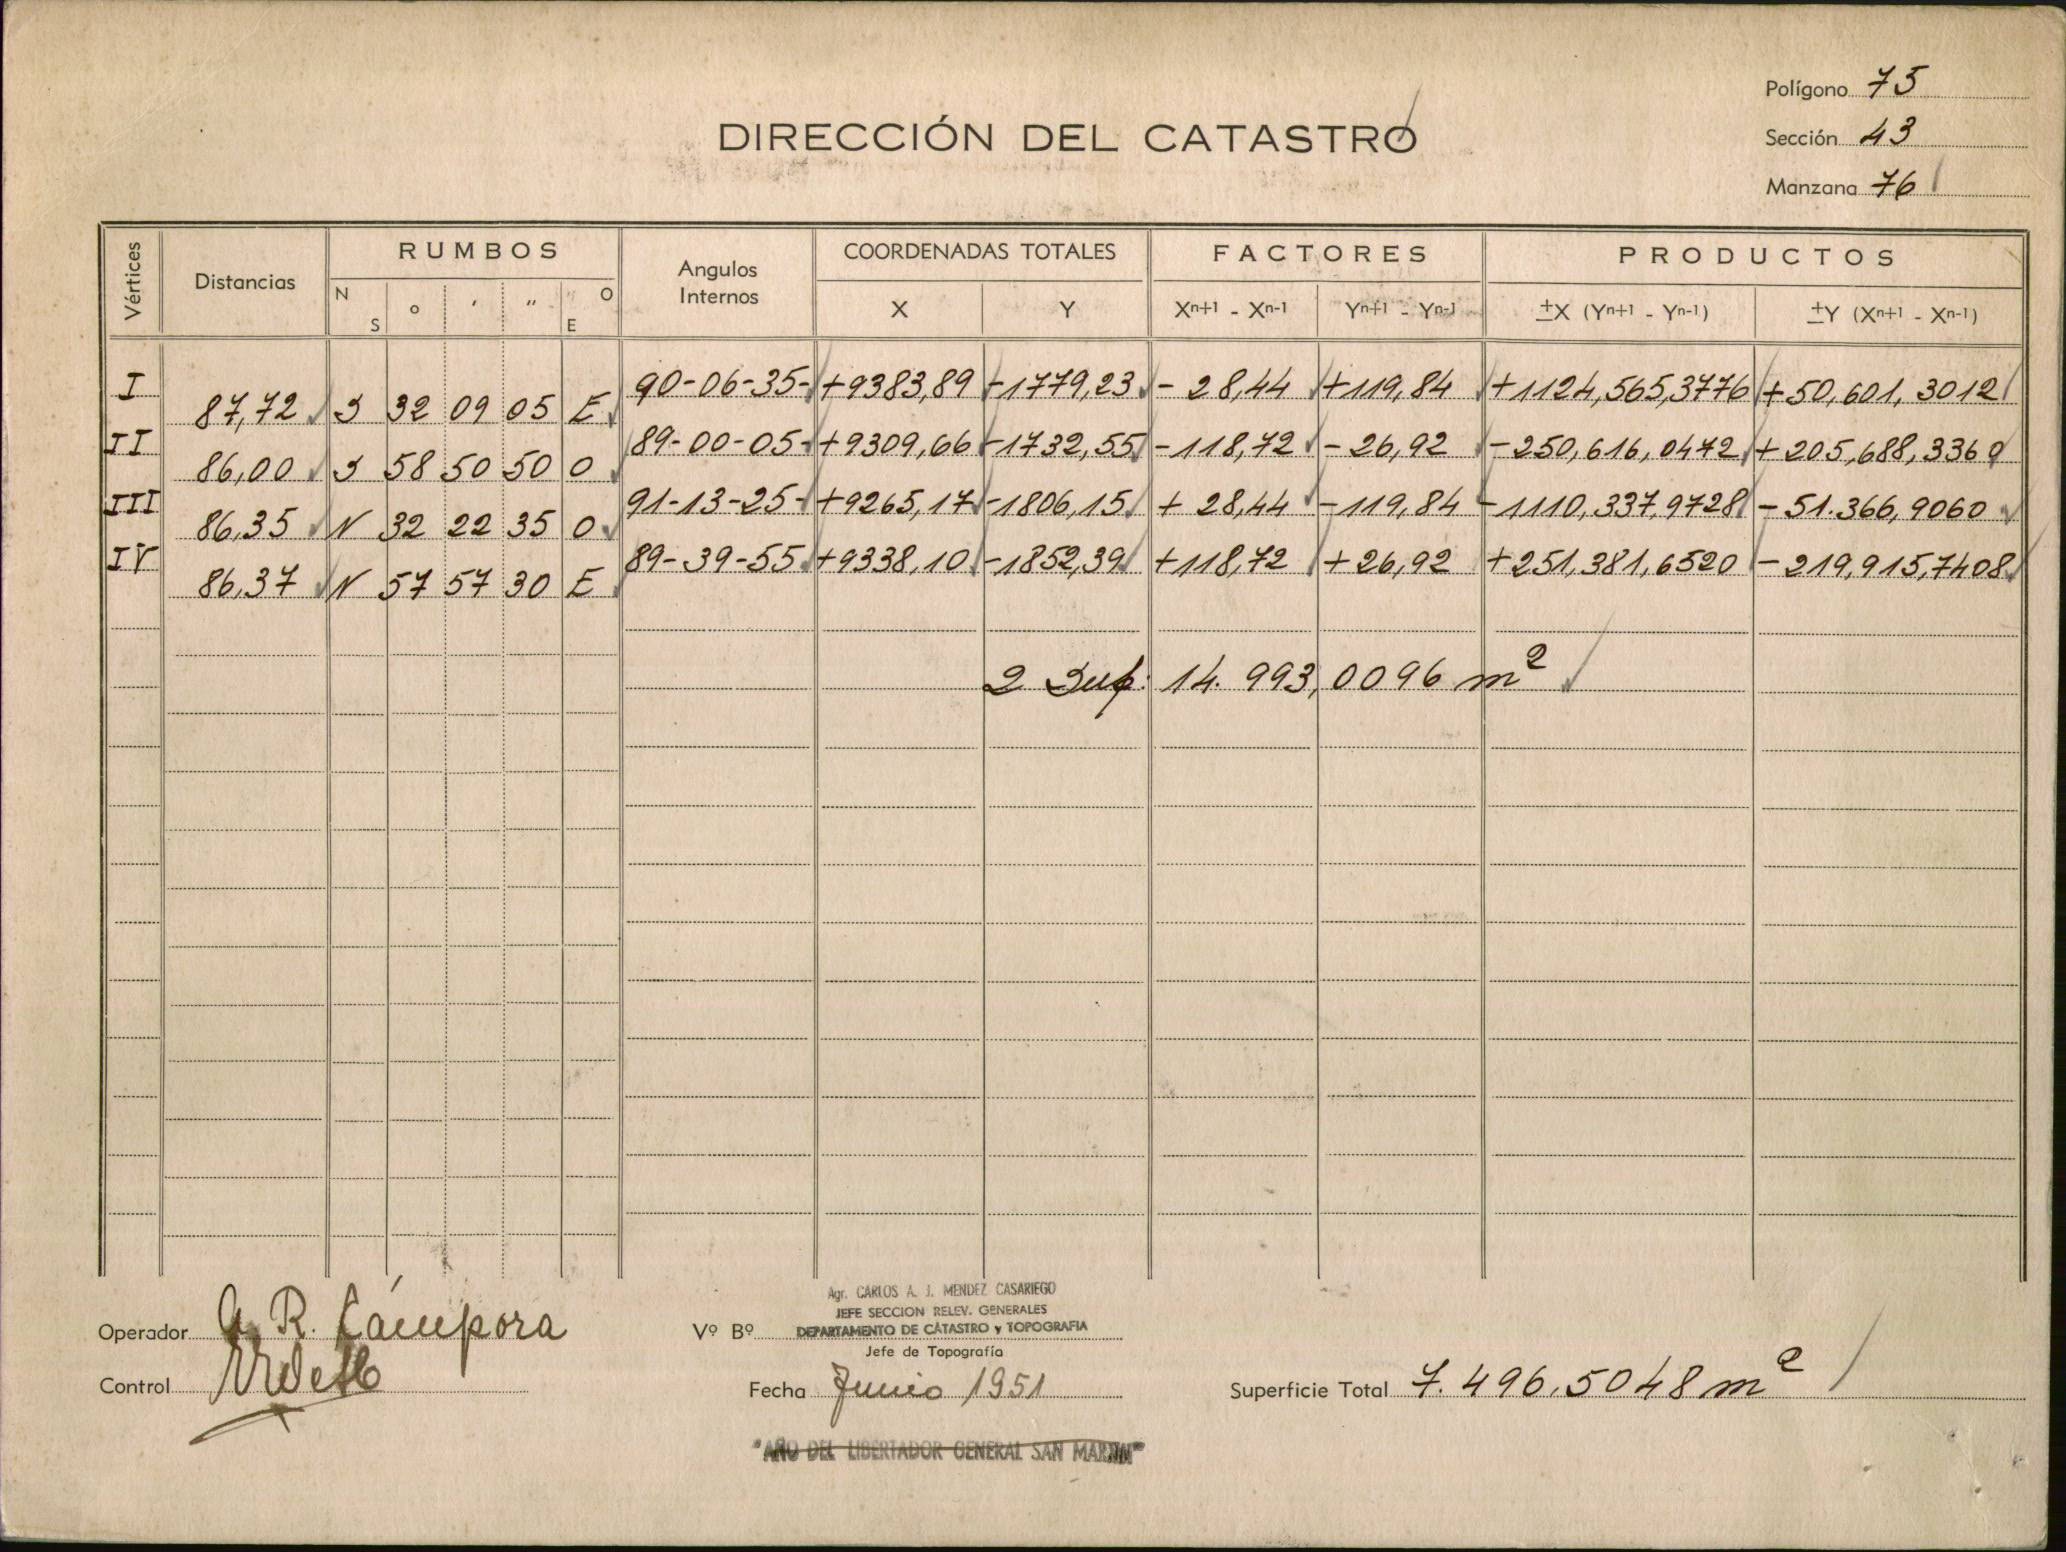 Polígono 75
DIRECCIÓN DEL CATASTRO
Sección 43
Manzana 76
Vértices
Distancias
RUMBOS
N S
o ' "
O E
Angulos Internos
COORDENADAS TOTALES
X Y
FACTORES
Xn+1 - Xn-1 Yn+1 - Yn-1
PRODUCTOS
±X (Yn+1 - Yn-1) ±Y (Xn+1 - Xn-1)
I 90-06-35- +9383,89 -1779,23 - 28,44 +119,84 +1124,565,3776 +50,601,3012
87,72 S 32 09 05 E
II 89-00-05- +9309,66 -1732,55 -118,72 - 26,92 -250,616,0472 +205,688,3360
86,00 S 58 50 50 O
III 91-13-25- +9265,17 -1806,15 + 28,44 -119,84 -1110,337,9728 -51.366,9060
86,35 N 32 22 35 O
IV 89-39-55 +9338,10 -1852,39 +118,72 +26,92 +251,381,6520 -219,915,7408
86,37 N 57 57 30 E
2 Sup. 14.993,0096 m2
Agr. CARLOS A. J. MENDEZ CASARIEGO
JEFE SECCION RELEV. GENERALES
DEPARTAMENTO DE CATASTRO y TOPOGRAFIA
Operador R. Cámpora
Vº Bº
Jefe de Topografía
Control
Fecha Junio 1951
Superficie Total 7.496,5048 m2
"AÑO DEL LIBERTADOR GENERAL SAN MARTIN"